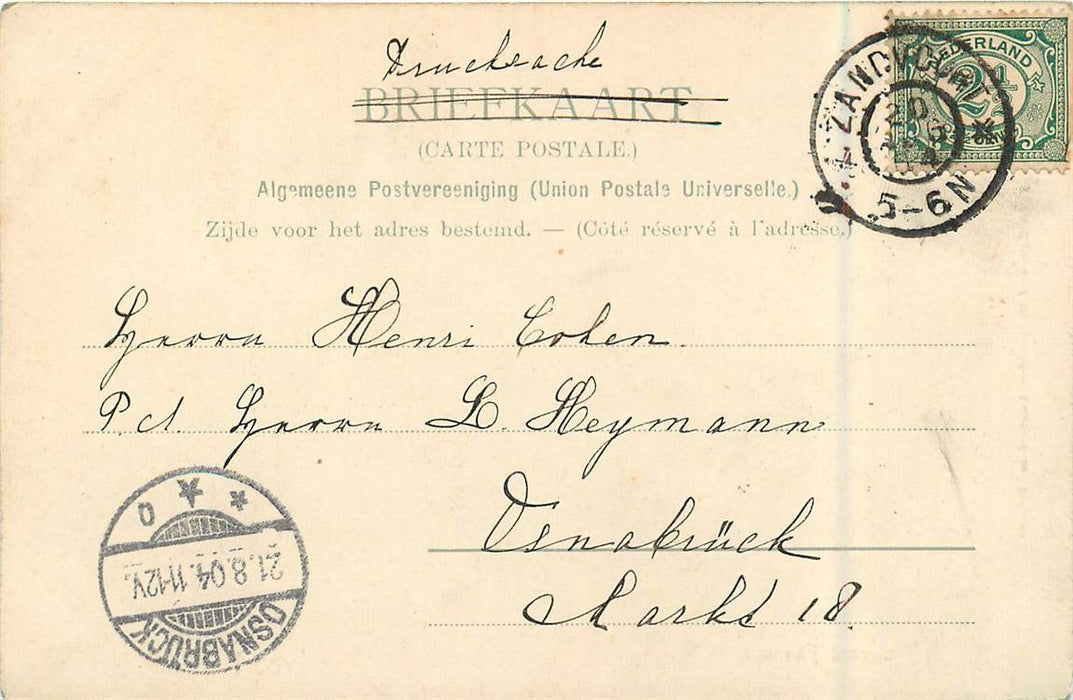 Drucksache
BRIEFKAART
(CARTE POSTALE.)
Algemeene Postvereeniging (Union Postale Universelle.)
Zijde voor het adres bestemd. — (Côté réservé à l'adresse.)
NEDERLAND
2½
ZANDVOORT
20
5-6N
Herrn Henri Cohen.
P. ad. Herrn L. Heymann
Osnabrück
Markt 18.
OSNABRÜCK
21.8.04.11-12V.